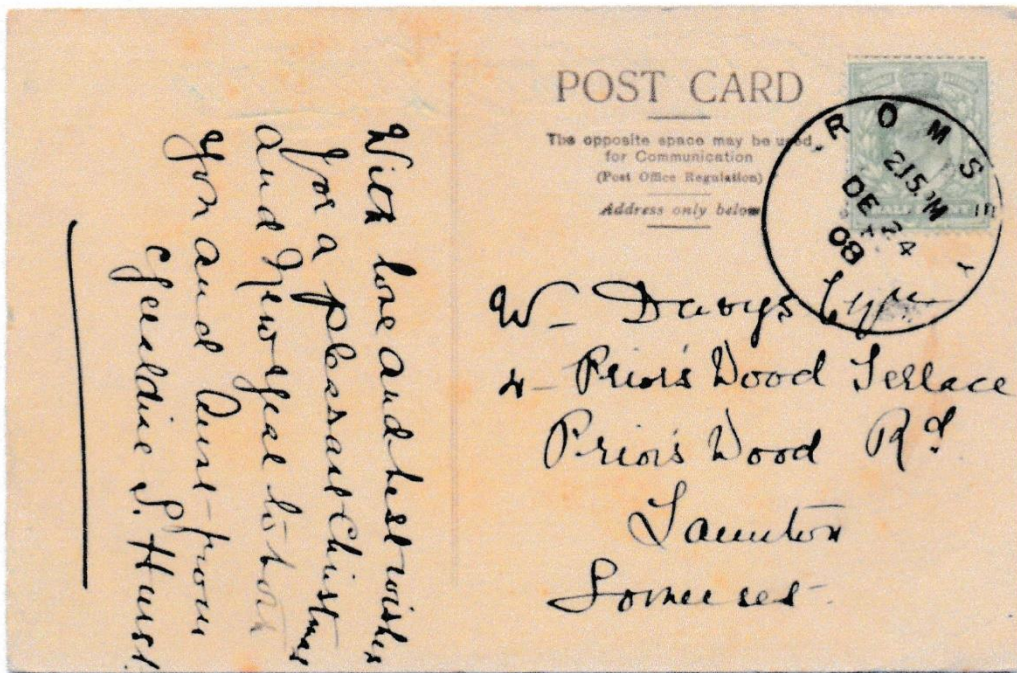 POST CARD
The opposite space may be used
for Communication
(Post Office Regulation)
Address only below
ROMSEY
2 15 PM
DE 24
08
With love and best wishes
for a pleasant Christmas
and New year to both
you and Aunt - from
Geraldine S. Hurst.
W- Davys
4- Prior's Wood Terrace
Prior's Wood Rd
Taunton
Somerset